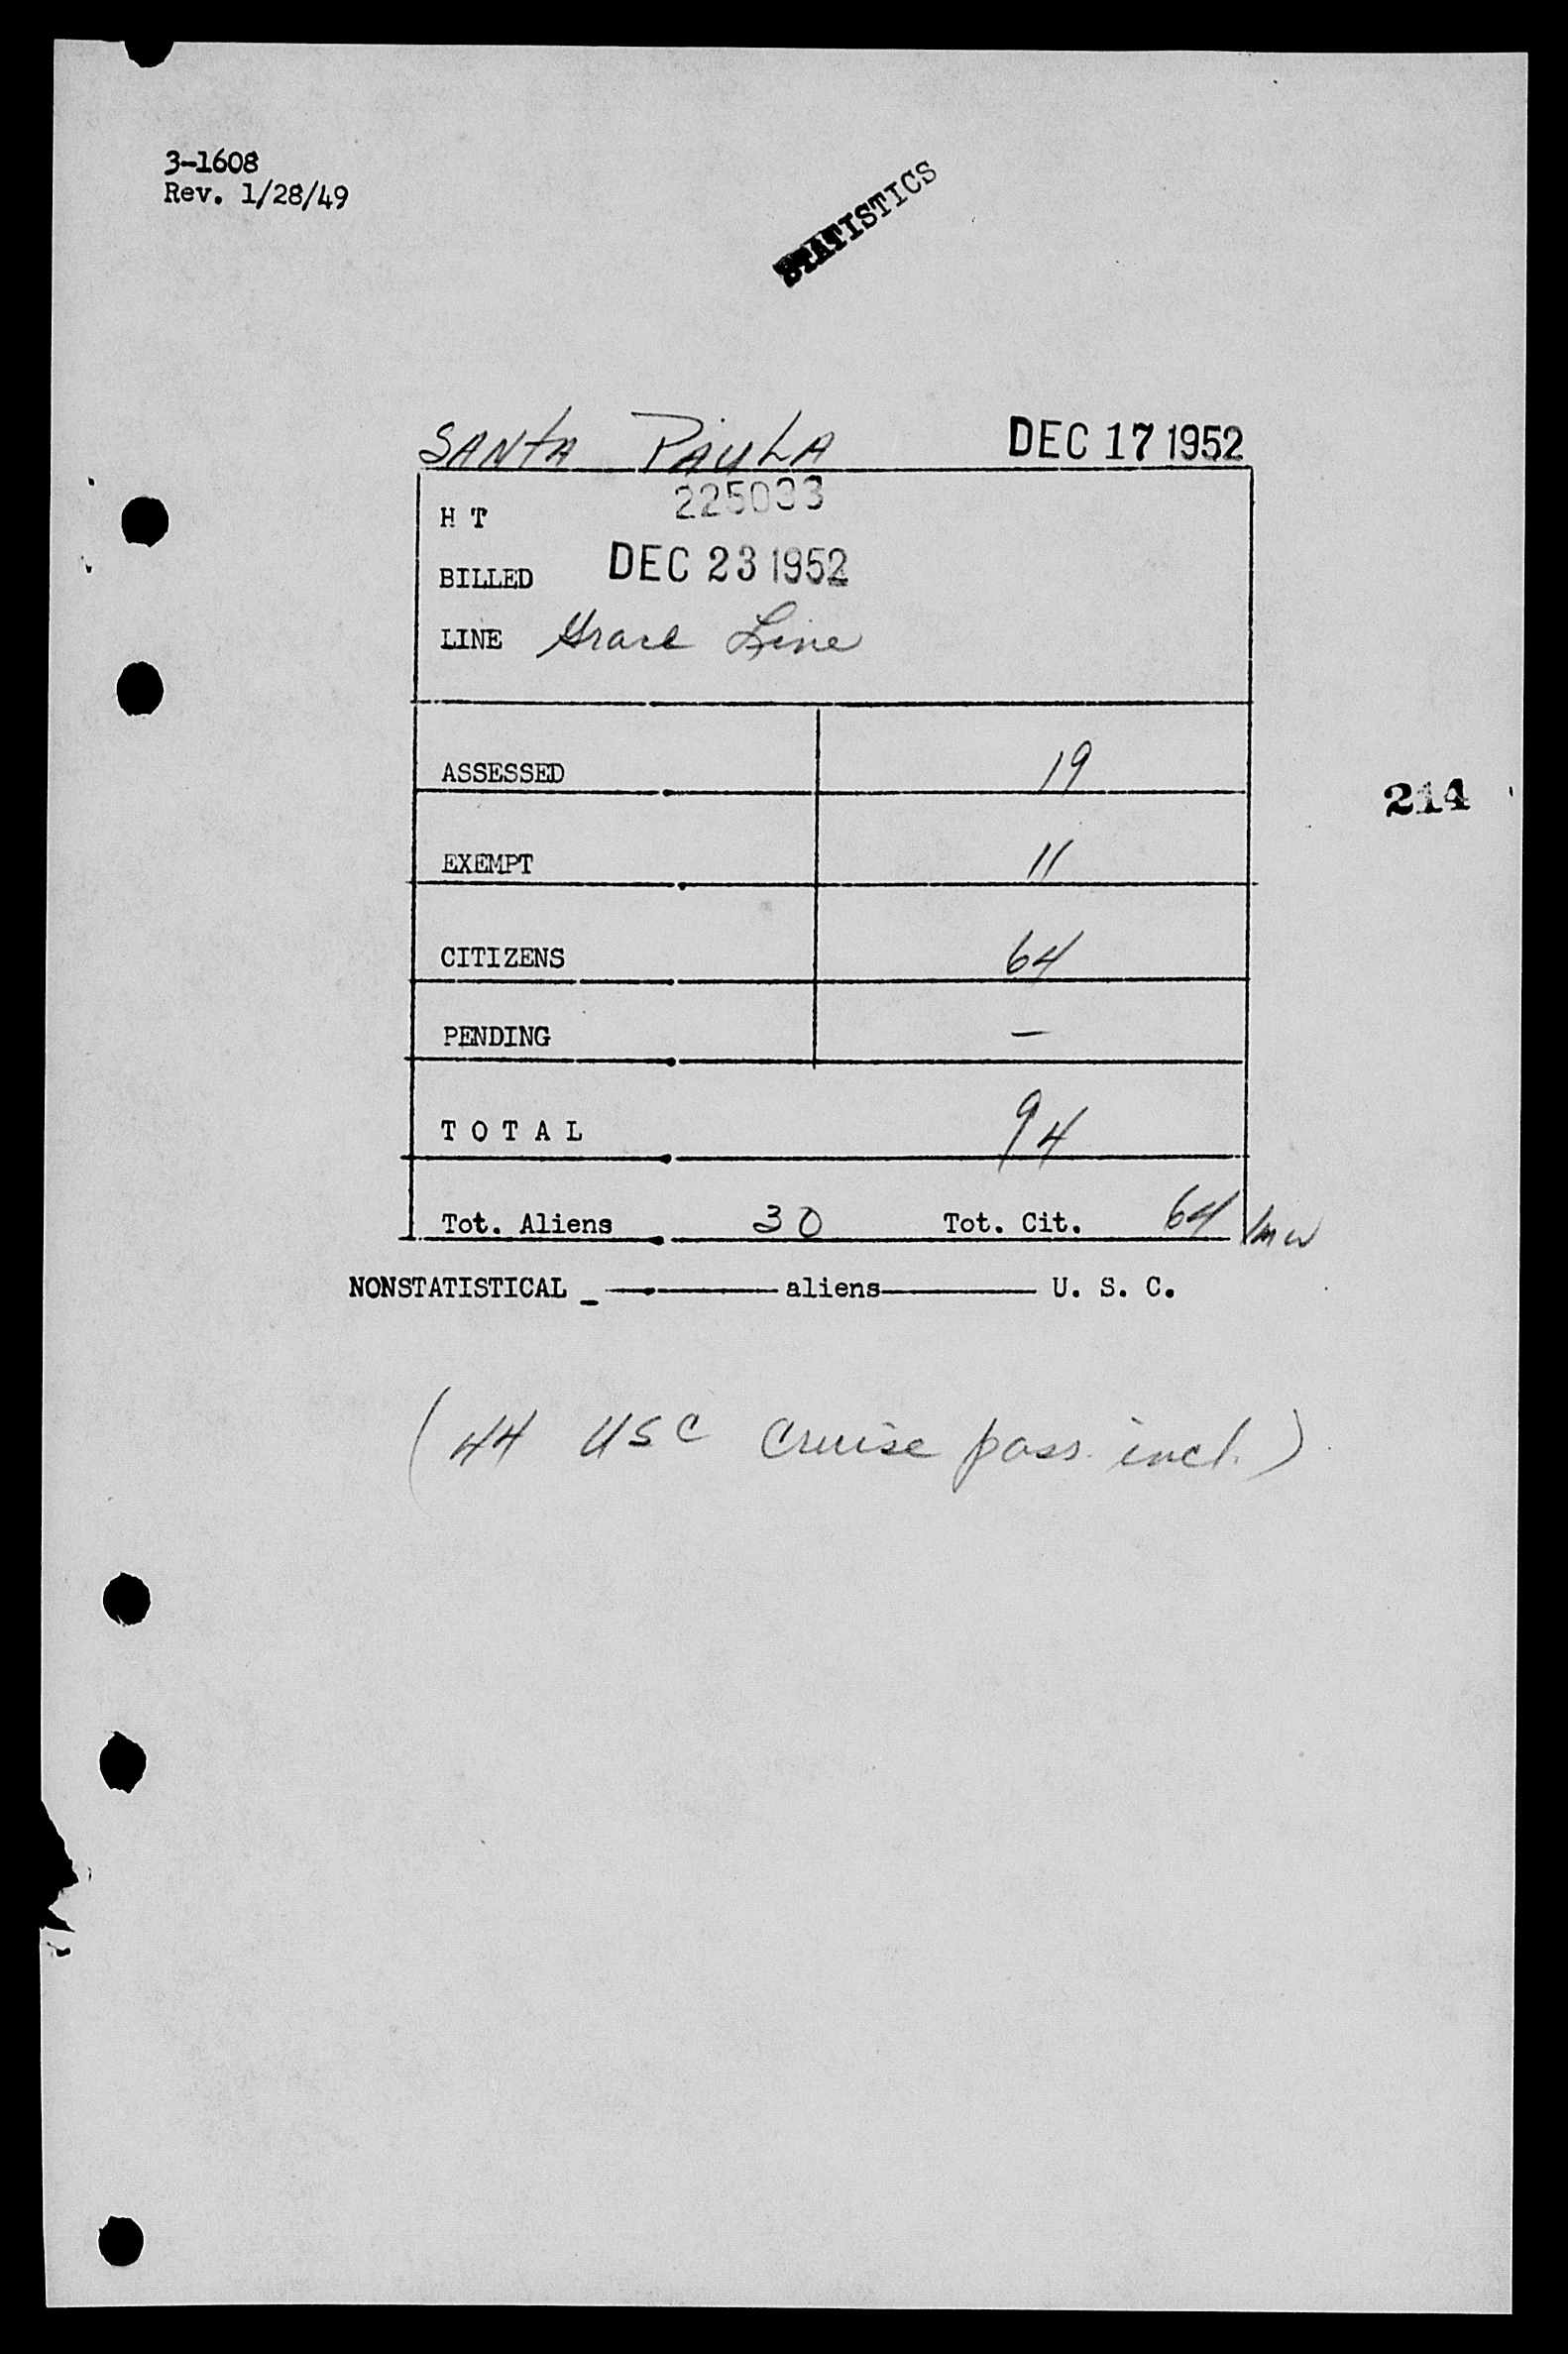 3-1608
Rev. 1/28/49
STATISTICS
SANTA PAULA DEC 17 1952
H T 225033
BILLED DEC 23 1952
LINE Grace Line
ASSESSED 19
214
EXEMPT 11
CITIZENS 64
PENDING —
T O T A L 94
Tot. Aliens 30 Tot. Cit. 64 /mw
NONSTATISTICAL _ ——— aliens ——— U. S. C.
(44 USC Cruise pass. incl.)